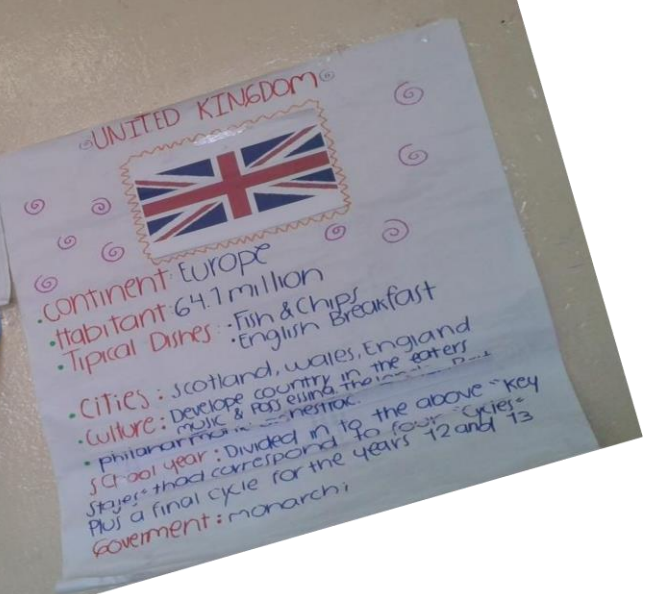 UNITED KINGDOM
• continent: Europe
• Habitant: 64.1 million
• Tipical Dishes: • Fish & Chips
• English Breakfast
• cities: Scotland, wales, England
• Culture: Develope country in the eaters
music &
• school year: Divided in to the above "Key
stajes" thad correspond to four "Cycles"
Plus a final cycle for the years 12 and 13
Goverment: monarchi